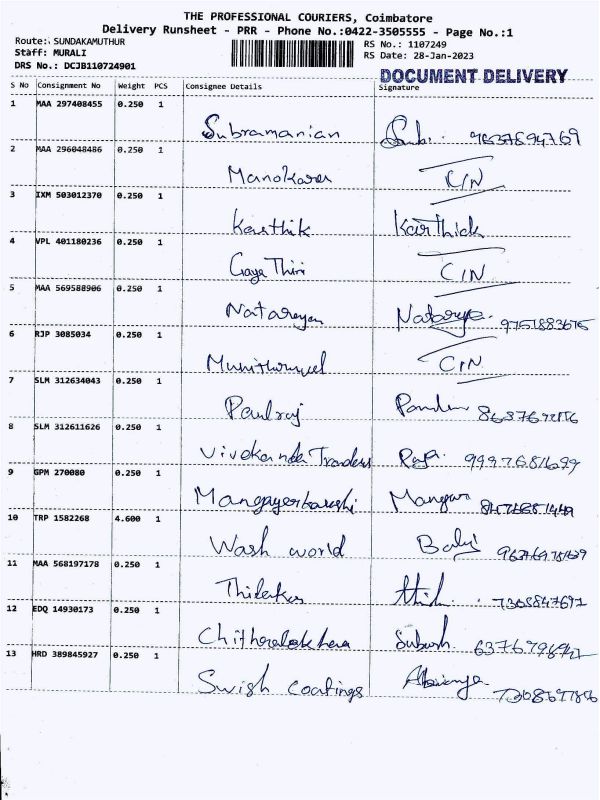 THE PROFESSIONAL COURIERS, Coimbatore
Delivery Runsheet - PRR - Phone No.:0422-3505555 - Page No.:1
Route:: SUNDAKAMUTHUR RS No.: 1107249
Staff: MURALI RS Date: 28-Jan-2023
DRS No.: DCJB110724901
DOCUMENT DELIVERY
S No Consignment No Weight PCS Consignee Details Signature
1 MAA 297408455 0.250 1
Subramanian
2 MAA 296048486 0.250 1
Manokaran CIN
3 IXM 503012370 0.250 1
Karthik Karthick
4 VPL 401180236 0.250 1
Gaya Thiri CIN
5 MAA 569588906 0.250 1
Natarayan 9751883675
6 RJP 3085034 0.250 1
CIN
7 SLM 312634043 0.250 1
Paulraj
8 SLM 312611626 0.250 1
Vivekanda Traders Raja
9 GPM 270080 0.250 1
Mangayerkarashi
10 TRP 1582268 4.600 1
Wash world
11 MAA 568197178 0.250 1
Thilakar
12 EDQ 14930173 0.250 1
Subash
13 HRD 389845927 0.250 1
Swish coatings